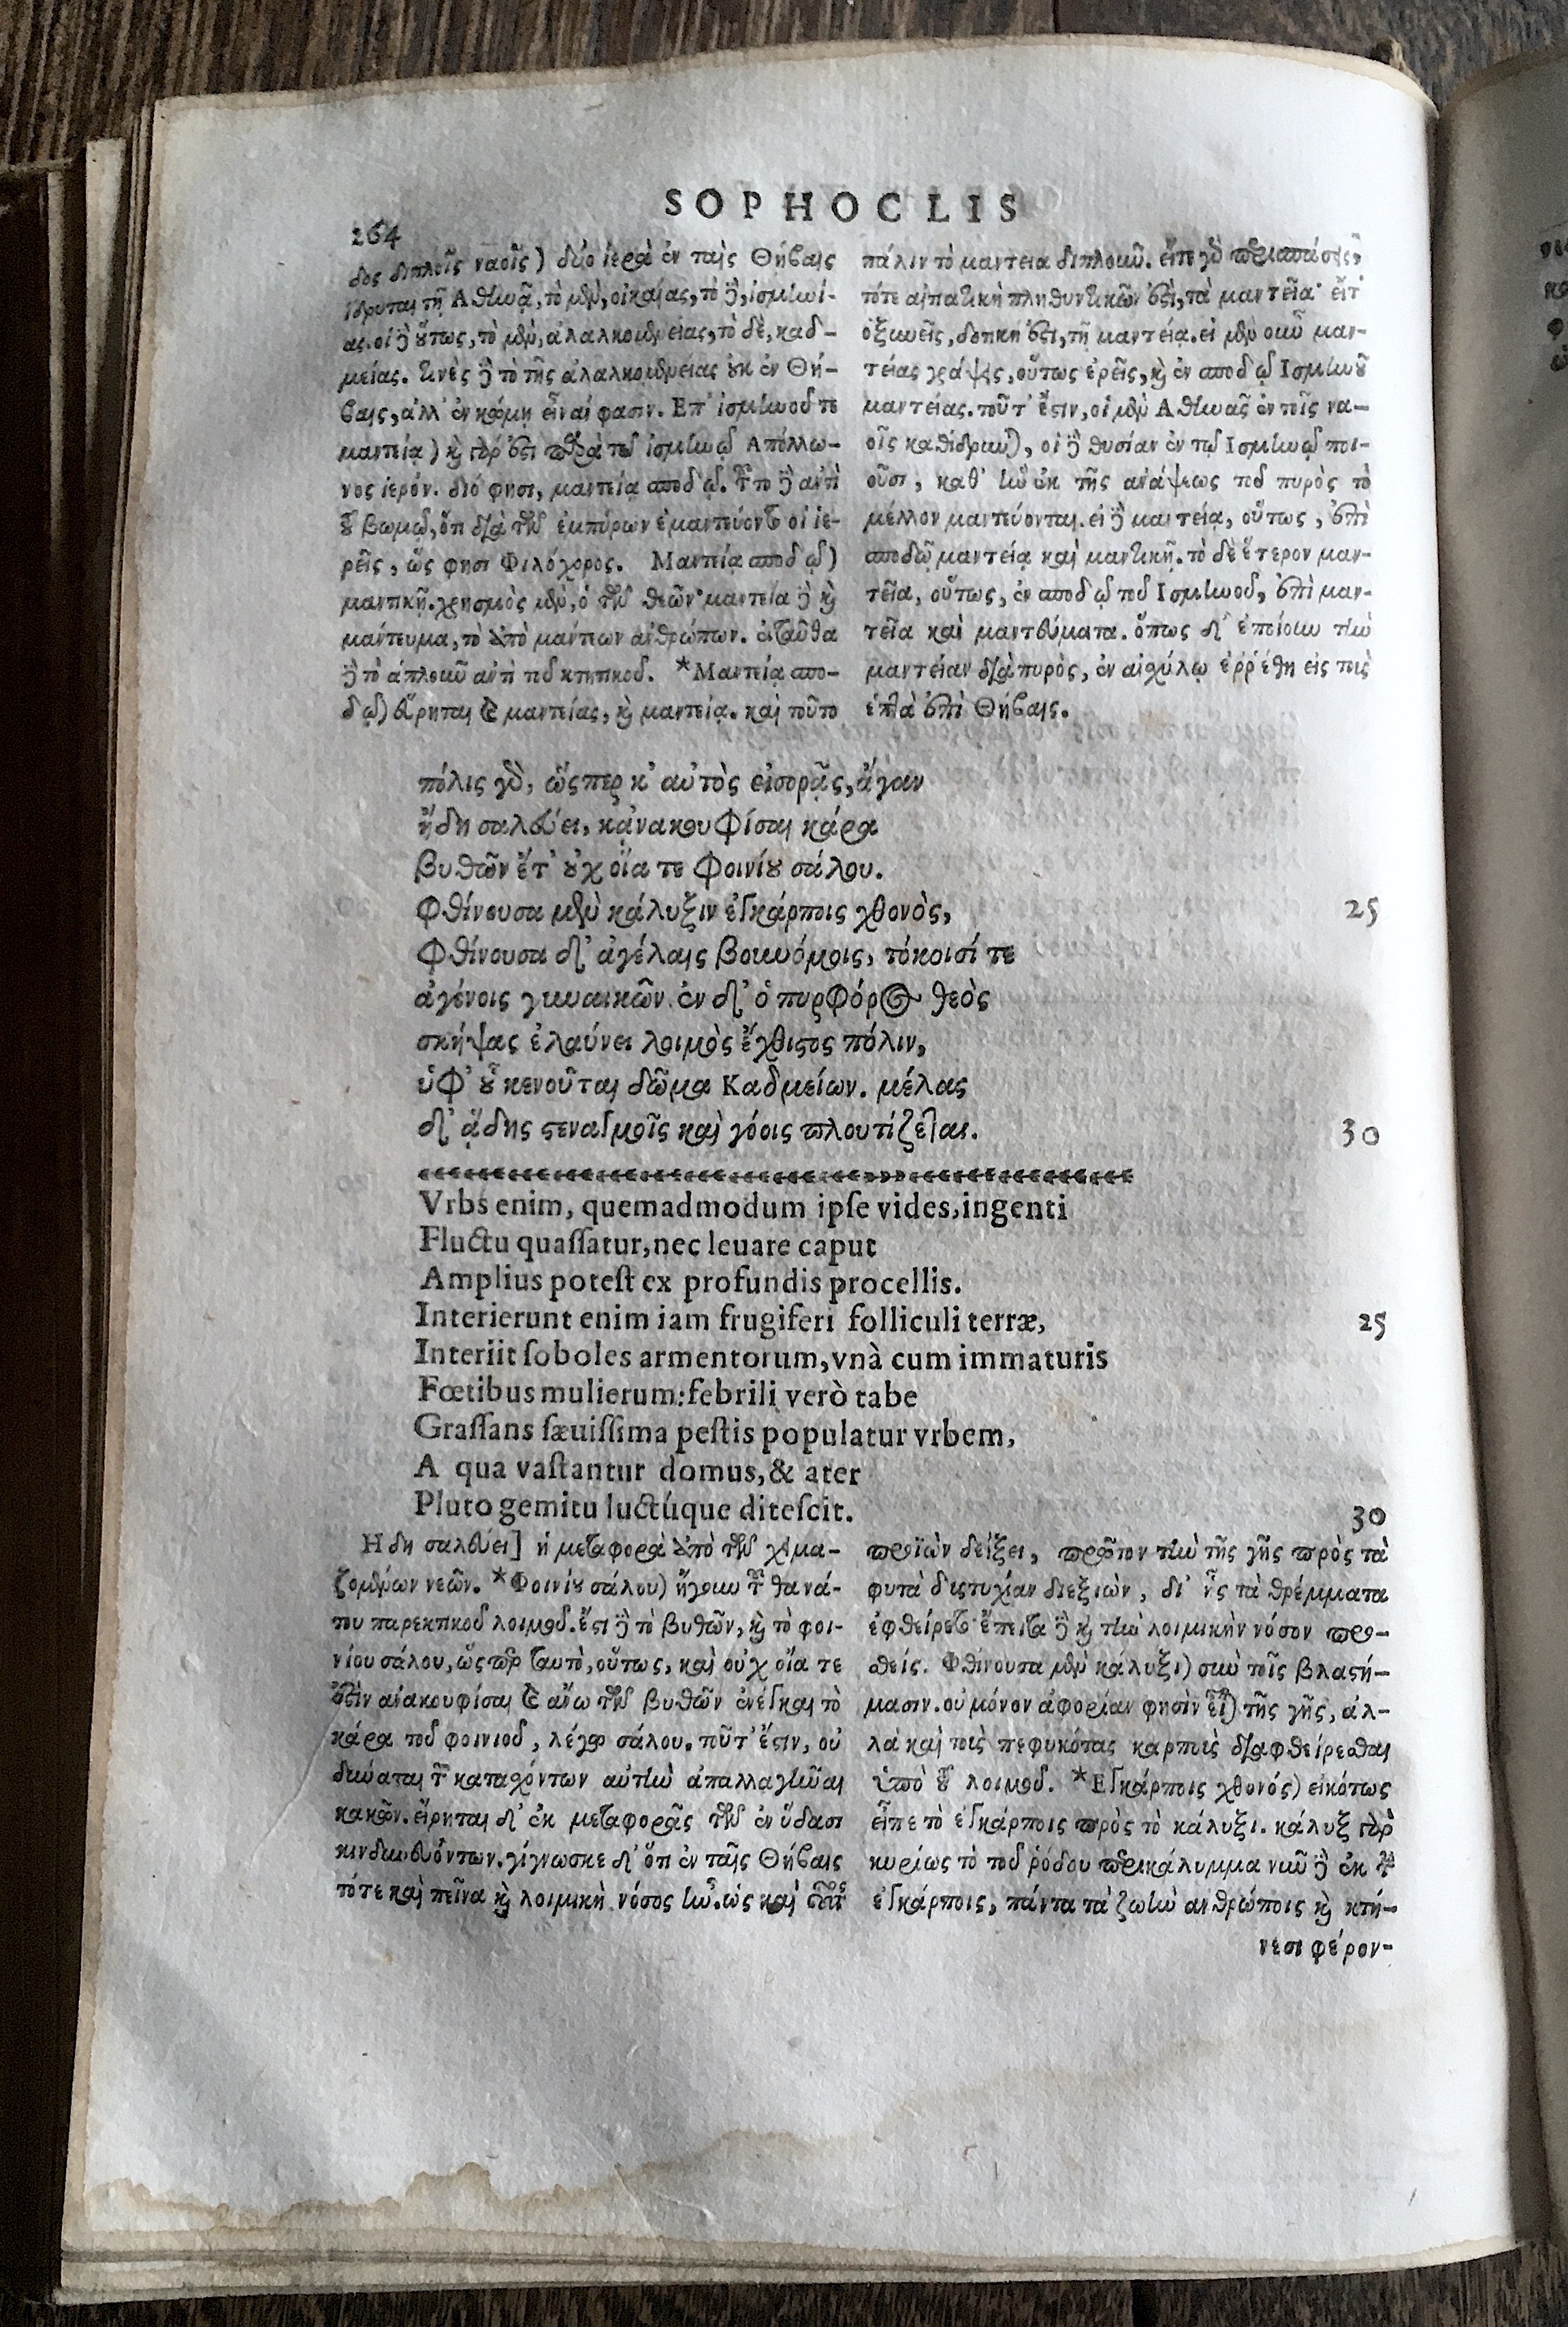 SOPHOCLIS
264
δος διπλοῖς ναοῖς) δύο ἱερὰ ἐν ταῖς Θήβαις
ἵδρυται τῇ Ἀθηνᾷ, τὸ μὲν, ὀγκαίας, τὸ δὲ, ἰσμηνί-
ας. οἱ δὲ οὕτως, τὸ μὲν, ἀλαλκομενείας, τὸ δὲ, καδ-
μείας. τινὲς δὲ τὸ τῆς ἀλαλκομενείας οὐκ ἐν Θή-
βαις, ἀλλ' ἐν κώμῃ εἶναί φασιν. Επ' ἰσμηνοῦ τε
μαντείᾳ) καὶ γάρ ἐστι παρὰ τῷ ἰσμηνῷ Απόλλω-
νος ἱερόν. διό φησι, μαντείᾳ σποδῷ. τοῦτο δὲ ἀντὶ
τοῦ βωμῷ, ὅτι διὰ τῶν ἐμπύρων ἐμαντεύοντο οἱ ἱε-
ρεῖς, ὥς φησι Φιλόχορος. Μαντείᾳ σποδῷ)
μαντικῇ. χρησμὸς μὲν, ὁ τῶν θεῶν· μαντεία δὲ καὶ
μάντευμα, τὸ ἀπὸ μάντεων ἀνθρώπων. ἐνταῦθα
δὲ τὸ ἁπλοῦν ἀντὶ τοῦ κτητικοῦ. *Μαντείᾳ σπο-
δῷ) εἴρηται καὶ μαντείας, καὶ μαντείᾳ. καὶ τοῦτο
πάλιν τὸ μαντεια διπλοῦν. εἴτε γὰρ
τότε αἰτιατικὴ πληθυντικῶν ἐστι, τὰ μαντεῖα· εἴτ'
ὀξυνεῖς, δοτική ἐστι, τῇ μαντείᾳ. εἰ μὲν οὖν μαν-
τείας γράψεις, οὕτως ἐρεῖς, καὶ ἐν σποδῷ Ισμηνοῦ
μαντείας. τοῦτ' ἔστιν, οἱ μὲν Αθηνᾶς ἐν τοῖς να-
οῖς καθίδρυνται, οἱ δὲ θυσίαν ἐν τῷ Ισμηνῷ ποι-
οῦσι, καθ' ἣν ἐκ τῆς ἀνάψεως τοῦ πυρὸς τὸ
μέλλον μαντεύονται. εἰ δὲ μαντείᾳ, οὕτως, ἐπὶ
σποδῷ μαντείᾳ καὶ μαντικῇ. τὸ δὲ ἕτερον μαν-
τεῖα, οὕτως, ἐν σποδῷ τοῦ Ισμηνοῦ, ἐπὶ μαν-
τεῖα καὶ μαντεύματα. ὅπως δ' ἐποίουν τὴν
μαντείαν διὰ πυρὸς, ἐν αἰσχύλῳ ἐῤῥέθη εἰς τοὺς
ἑπτὰ ἐπὶ Θήβαις.
πόλις γὰρ, ὥσπερ κ' αὐτὸς εἰσορᾷς, ἄγαν
ἤδη σαλεύει, κᾀνακουφίσαι κάρα
βυθῶν ἔτ' οὐχ οἵα τε φοινίου σάλου.
φθίνουσα μὲν κάλυξιν ἐγκάρποις χθονὸς, 25
φθίνουσα δ' ἀγέλαις βουνόμοις, τόκοισί τε
ἀγόνοις γυναικῶν. ἐν δ' ὁ πυρφόρος θεὸς
σκήψας ἐλαύνει λοιμὸς ἔχθιστος πόλιν,
ὑφ' οὗ κενοῦται δῶμα Καδμείων. μέλας
δ' ᾅδης στεναγμοῖς καὶ γόοις πλουτίζεται. 30
Vrbs enim, quemadmodum ipſe vides, ingenti
Fluctu quaſſatur, nec leuare caput
Amplius poteſt ex profundis procellis.
Interierunt enim iam frugiferi folliculi terræ, 25
Interiit ſoboles armentorum, vnà cum immaturis
Fœtibus mulierum: febrili verò tabe
Graſſans ſæuiſſima peſtis populatur vrbem,
A qua vaſtantur domus, & ater
Pluto gemitu luctúque diteſcit. 30
Ηδη σαλεύει] ἡ μεταφορὰ ἀπὸ τῶν χειμα-
ζομένων νεῶν. *Φοινίου σάλου) ἤγουν τοῦ θανά-
του παρεκτικοῦ λοιμοῦ. ἔστι δὲ τὸ βυθῶν, καὶ τὸ φοι-
νίου σάλου, ὥσπερ ταυτὸ, οὕτως, καὶ οὐχ οἵα τε
ἐστὶν ἀνακουφίσαι καὶ ἄνω τῶν βυθῶν ἐνέγκαι τὸ
κάρα τοῦ φοινίου, λέγω σάλου. τοῦτ' ἔστιν, οὐ
δύναται τῶν κατασχόντων αὐτὴν ἀπαλλαγῆναι
κακῶν. εἴρηται δ' ἐκ μεταφορᾶς τῶν ἐν ὕδασι
κινδυνευόντων. γίγνωσκε δ' ὅτι ἐν ταῖς Θήβαις
τότε καὶ πεῖνα καὶ λοιμικὴ νόσος ἦν. ὡς καὶ οὗτος
προϊὼν δείξει, πρῶτον τὴν τῆς γῆς πρὸς τὰ
φυτὰ δυστυχίαν διεξιὼν, δι' ἧς τὰ θρέμματα
ἐφθείρετο· ἔπειτα δὲ καὶ τὴν λοιμικὴν νόσον προσ-
θείς. Φθίνουσα μὲν κάλυξι) σὺν τοῖς βλαστή-
μασιν. οὐ μόνον ἀφορίαν φησὶν εἶναι τῆς γῆς, ἀλ-
λὰ καὶ τοὺς πεφυκότας καρποὺς διαφθείρεσθαι
ὑπὸ τοῦ λοιμοῦ. *Εγκάρποις χθονός) εἰκότως
εἶπε τὸ ἐγκάρποις πρὸς τὸ κάλυξι. κάλυξ γὰρ
κυρίως τὸ τοῦ ῥόδου περικάλυμμα· νῦν δὲ ἐκ τοῦ
ἐγκάρποις, πάντα τὰ ζωὴν ἀνθρώποις καὶ κτή-
νεσι φέρον-